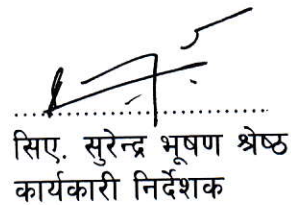 सिए. सुरेन्द्र भूषण श्रेष्ठ
कार्यकारी निर्देशक